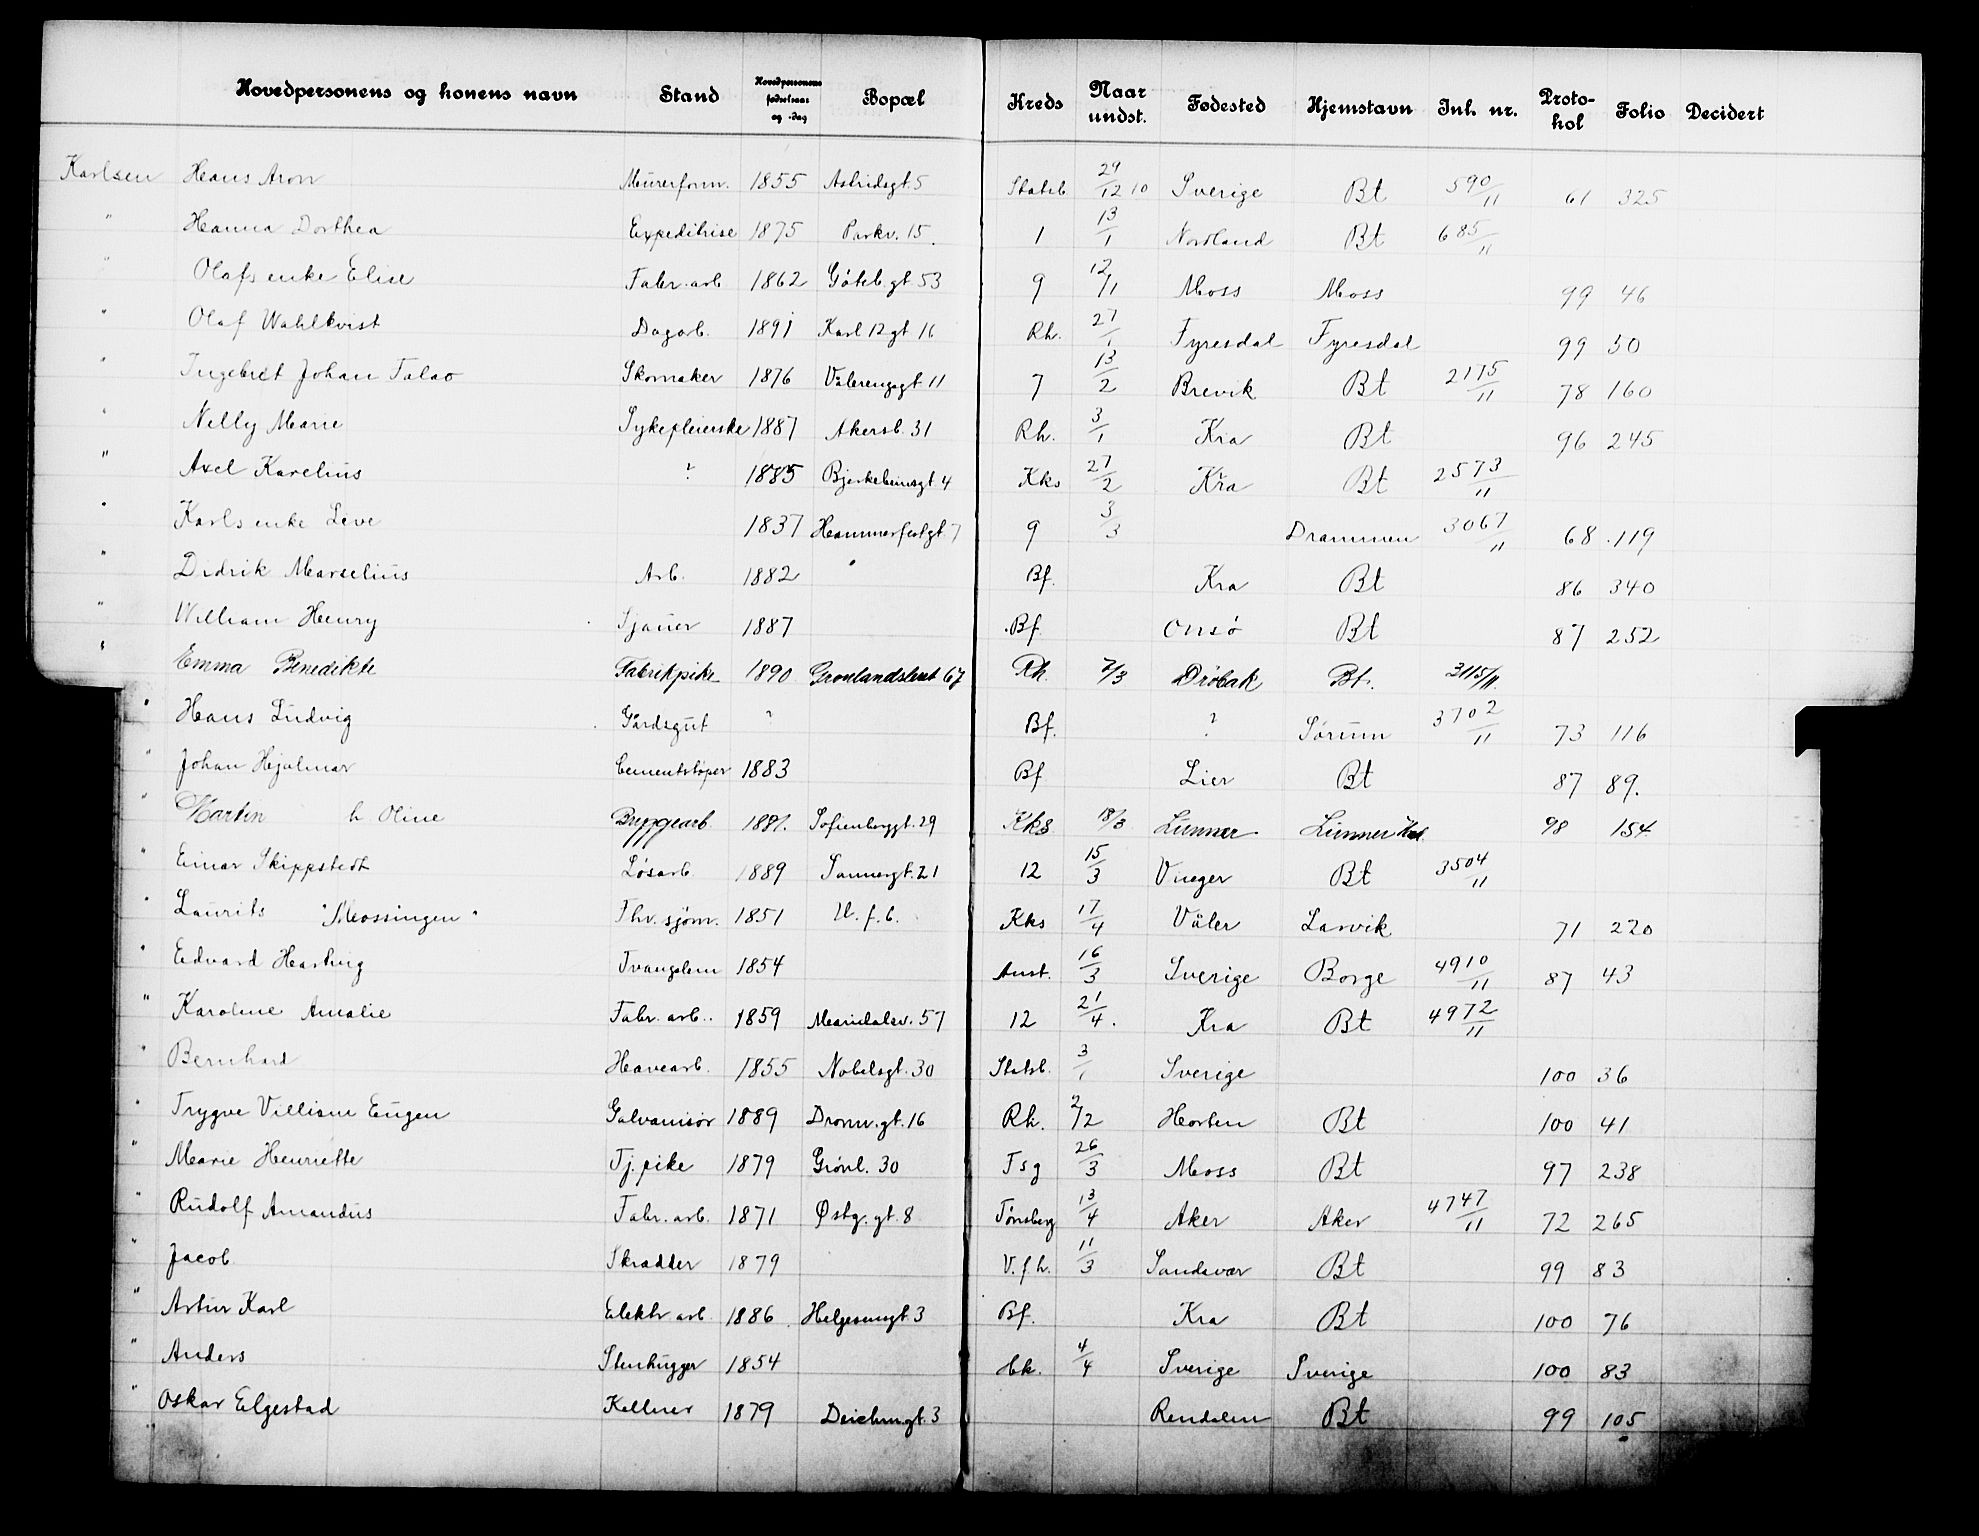 Hovedpersonens og konens navn Stand Hovedpersonens fødselsaar og -dag Bopæl Kreds Naar undst. Fødested Hjemstavn Inl. nr. Protokol Folio Decidert
Karlsen Hans Aron Murerform. 1855 Astridsgt. 5 Statsb. 29/12 10 Sverige Bt 590/11 61 325
" Hanna Dorthea Expeditrise 1875 Parkv. 15. 1 13/1 Nordland Bt 685/11
" Olafs enke Elise Fabr. arb 1862 Göteb.gt. 53 9 12/1 Moss Moss 99 46
" Olaf Wahlkvist Dagarb. 1891 Karl 12 gt 16 Rh. 27/1 Fyresdal Fyresdal 99 50
" Ingebret Johan Falao Skomaker 1876 Vålerengagt 11 7 13/2 Brevik Bt 2175/11 78 160
" Nelly Marie Sykepleierske 1887 Akersb. 31 Rh. 3/1 Kra Bt 96 245
" Axel Karelius ? 1885 Bjerkebeinsgt 4 Kks 27/2 Kra Bt 2573/11
" Karls enke Leve 1837 Hammerfestgt 7 9 3/3 Drammen 3067/11 68 119
" Didrik Marselius Arb. 1882 " Bf. Kra Bt 86 340
" William Henry Sjauer 1887 Bf. Onsø Bt 87 252
" Emma Benedikte Fabrikpike 1890 Grønlandsleret 67 Rh. 7/3 Drøbak Bt. 3115/11.
" Hans Ludvig Gårdsgut ? Bf. ? Sørum 3702/11 73 116
" Johan Hjalmar Cementstøper 1883 Bf Lier Bt 87 89.
" Martin h. Oline Byggearb 1881. Sofienberggt. 29 Kks 18/3 Lunner Lunner 98 154
" Einar Skippstedt Løsarb 1889 Sannergt. 21 12 15/3 Vinger Bt 3504/11
" Laurits "Mossingen" Fhv. sjøm. 1851 U. f. b. Kks 17/4 Våler Larvik 71 220
" Edvard Hartvig Tvangslem 1854 Anst. 16/3 Sverige Borge 4910/11 87 43
" Karoline Amalie Fabr. arb. 1859 Maridalsv. 57 12 21/4. Kra Bt 4972/11
" Bernhard Havearb. 1855 Nobelsgt. 30 Statsb. 3/1 Sverige 100 36
" Trygve Villiam Eugen Galvanisør 1889 Dronn. gt. 16 Rh. 2/12 Horten Bt 100 41
" Marie Henriette Tj. pike 1879 Grønl. 30 Tsg 26/3 Moss Bt 97 238
" Rudolf Amandus Fabr. arb. 1871 Østg. gt. 8 Tønsberg 13/4 Aker Aker 4747/11 72 265
" Jacob Skrædder 1879 V. f. h. 11/3 Sandsvær Bt 99 83
" Artur Karl Elektr. arb. 1886 Helgesensgt 3 Bf. Kra Bt 100 76
" Anders Stenhugger 1854 Hk. 4/4 Sverige Sverige 100 83
" Oskar Elgestad Kellner 1879 Deichmgt. 3 Rendalen Bt 99 105